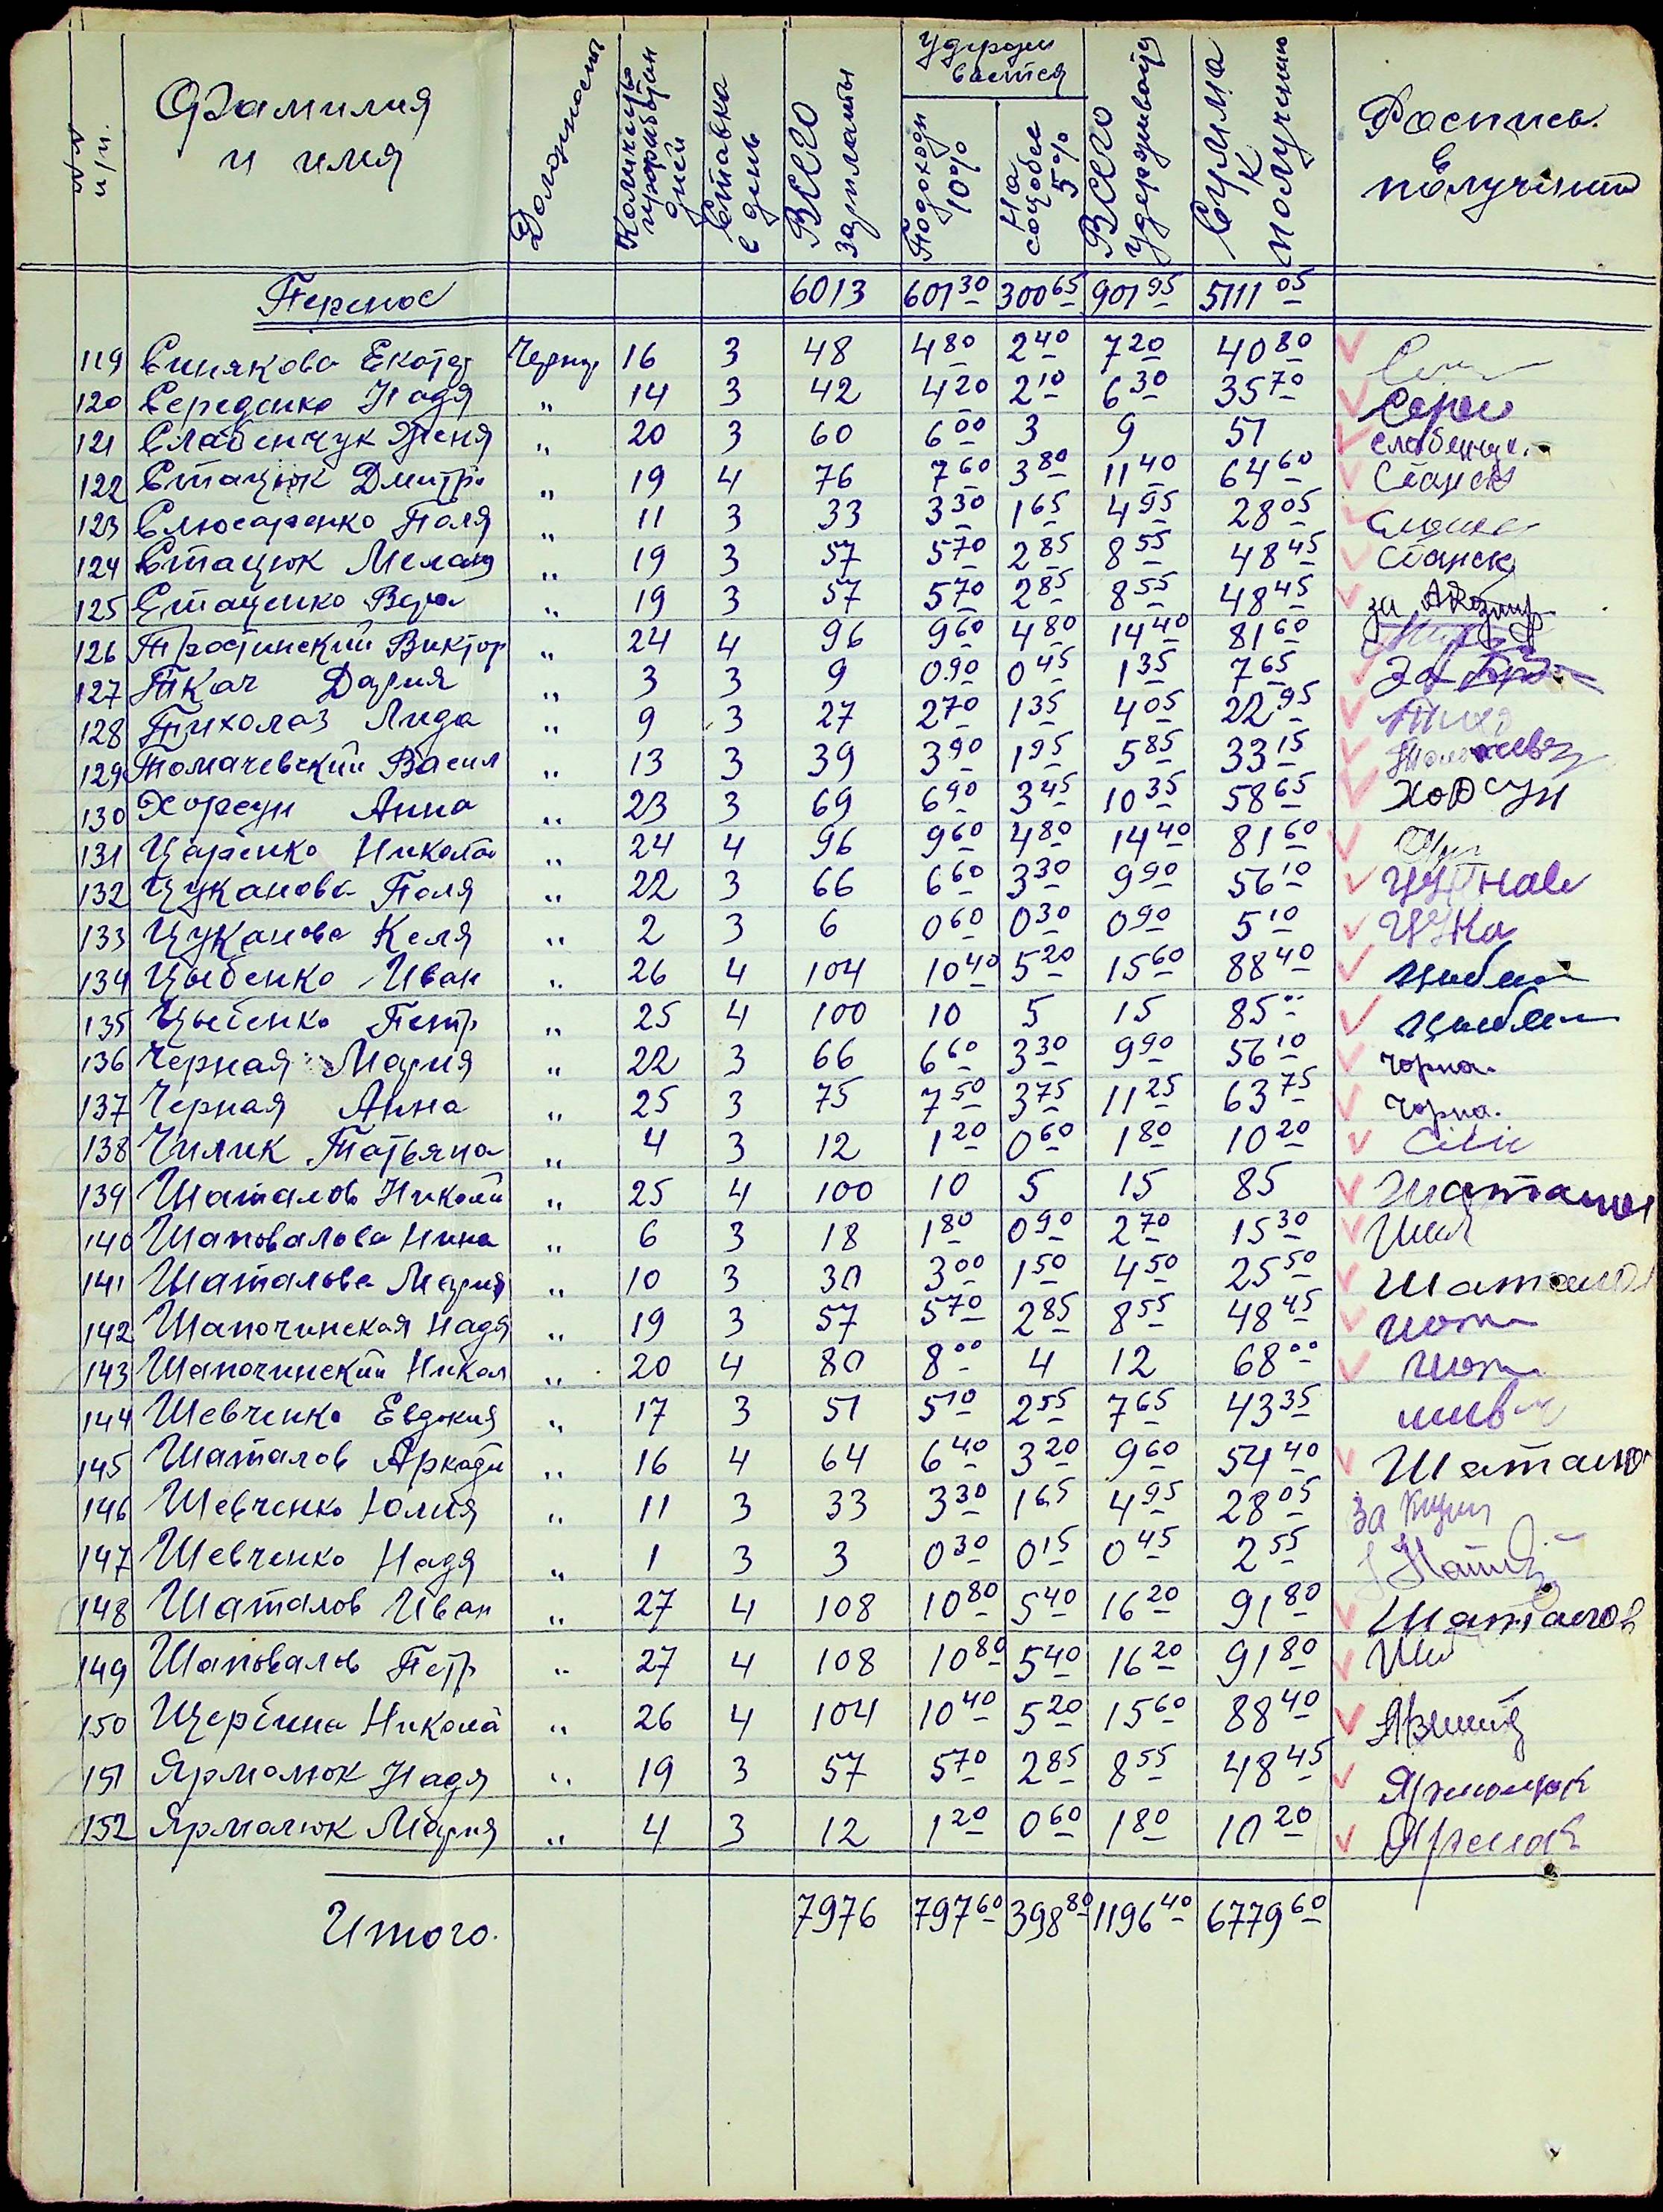 №№ п/п. Фамилия и имя Должность Количество прораб. дней Ставка в день Всего зарплаты Удерживается Подоходн 10% На соцобес 5% Всего удерживают Сумма к получению Роспись в получении
Перенос 6013 601 30 300 65 901 95 5111 05
119 Синякова Екатер Чернор 16 3 48 4 80 2 40 7 20 40 80
120 Середенко Надя " 14 3 42 4 20 2 10 6 30 35 70 Сере
121 Слабенчук Женя " 20 3 60 6 00 3 9 51 Слабенчук.
122 Стацюк Дмитр. " 19 4 76 7 60 3 80 11 40 64 60
123 Слюсаренко Поля " 11 3 33 3 30 1 65 4 95 28 05
124 Стацюк Мелан " 19 3 57 5 70 2 85 8 55 48 45
125 Стаценко Вера " 19 3 57 5 70 2 85 8 55 48 45 за
126 Тростинский Виктор " 24 4 96 9 60 4 80 14 40 81 60
127 Ткач Дария " 3 3 9 0.90 0 45 1 35 7 65 За
128 Тихолаз Лида " 9 3 27 2 70 1 35 4 05 22 95 Тихо
129 Томачевский Васил " 13 3 39 3 90 1 95 5 85 33 15
130 Хорсун Анна " 23 3 69 6 90 3 45 10 35 58 65 Хорсун
131 Царенко Никола " 24 4 96 9 60 4 80 14 40 81 60
132 Цуканова Поля " 22 3 66 6 60 3 30 9 90 56 10
133 Цуканова Келя " 2 3 6 0 60 0 30 0 90 5 10 Цука
134 Цыбенко Иван " 26 4 104 10 40 5 20 15 60 88 40
135 Цыбенко Петр " 25 4 100 10 5 15 85 --
136 Черная Мария " 22 3 66 6 60 3 30 9 90 56 10 Чорна.
137 Черная Анна " 25 3 75 7 50 3 75 11 25 63 75 Чорна.
138 Чилик Татьяна " 4 3 12 1 20 0 60 1 80 10 20
139 Шаталов Николай " 25 4 100 10 5 15 85 Шаталов
140 Шаповалова Нина " 6 3 18 1 80 0 90 2 70 15 30
141 Шаталова Мария " 10 3 30 3 00 1 50 4 50 25 50 Шаталов
142 Шапочинская Надя " 19 3 57 5 70 2 85 8 55 48 45
143 Шапочинский Никол " 20 4 80 8 00 4 12 68 00
144 Шевченко Евдокия " 17 3 51 5 10 2 55 7 65 43 35 шев
145 Шаталов Аркади " 16 4 64 6 40 3 20 9 60 54 40 Шаталов
146 Шевченко Юлия " 11 3 33 3 30 1 65 4 95 28 05 За
147 Шевченко Надя " 1 3 3 0 30 0 15 0 45 2 55
148 Шаталов Иван " 27 4 108 10 80 5 40 16 20 91 80 Шаталов
149 Шаповалов Петр " 27 4 108 10 80 5 40 16 20 91 80
150 Щербина Никола " 26 4 104 10 40 5 20 15 60 88 40
151 Ярмолюк Надя " 19 3 57 5 70 2 85 8 55 48 45 Ярмолюк
152 Ярмолюк Мария " 4 3 12 1 20 0 60 1 80 10 20
Итого. 7976 797 60 398 80 1196 40 6779 60